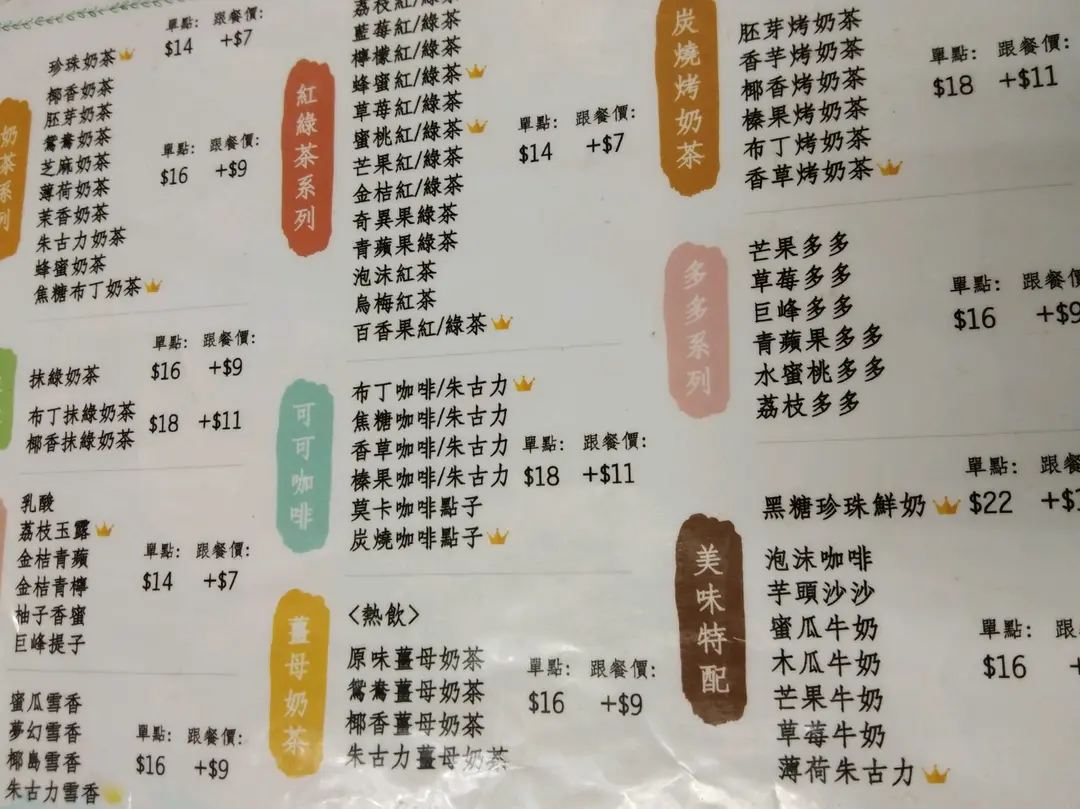 奶茶系列
單點: 跟餐價:
珍珠奶茶 $14 +$7
椰香奶茶
胚芽奶茶
鴛鴦奶茶
芝麻奶茶
薄荷奶茶
茉香奶茶
朱古力奶茶
蜂蜜奶茶
焦糖布丁奶茶
單點: 跟餐價:
$16 +$9
單點: 跟餐價:
抹綠奶茶 $16 +$9
布丁抹綠奶茶
椰香抹綠奶茶
$18 +$11
乳酸
荔枝玉露
金桔青蘋
金桔青檸
柚子香蜜
巨峰提子
單點: 跟餐價:
$14 +$7
蜜瓜雪香
夢幻雪香
椰島雪香
朱古力雪香
單點: 跟餐價:
$16 +$9
紅綠茶系列
荔枝紅/綠茶
藍莓紅/綠茶
檸檬紅/綠茶
蜂蜜紅/綠茶
草莓紅/綠茶
蜜桃紅/綠茶
芒果紅/綠茶
金桔紅/綠茶
奇異果綠茶
青蘋果綠茶
泡沫紅茶
烏梅紅茶
百香果紅/綠茶
單點: 跟餐價:
$14 +$7
可可咖啡
布丁咖啡/朱古力
焦糖咖啡/朱古力
香草咖啡/朱古力
榛果咖啡/朱古力
莫卡咖啡點子
炭燒咖啡點子
單點: 跟餐價:
$18 +$11
薑母奶茶
<熱飲>
原味薑母奶茶
鴛鴦薑母奶茶
椰香薑母奶茶
朱古力薑母奶茶
單點: 跟餐價:
$16 +$9
炭燒烤奶茶
胚芽烤奶茶
香芋烤奶茶
椰香烤奶茶
榛果烤奶茶
布丁烤奶茶
香草烤奶茶
單點: 跟餐價:
$18 +$11
多多系列
芒果多多
草莓多多
巨峰多多
青蘋果多多
水蜜桃多多
荔枝多多
單點: 跟餐價
$16 +$9
美味特配
單點: 跟餐
黑糖珍珠鮮奶 $22 +$
泡沫咖啡
芋頭沙沙
蜜瓜牛奶
木瓜牛奶
芒果牛奶
草莓牛奶
薄荷朱古力
單點: 跟
$16 +